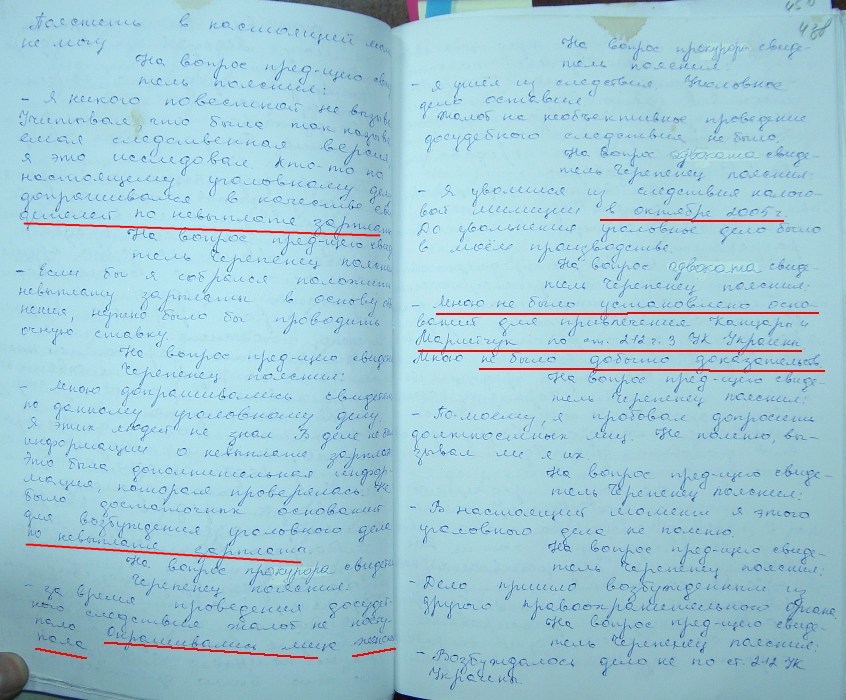 Пояснить в настоящий мом
не могу
На вопрос пред-щего сви
тель пояснил:
- Я никого повесткой не вызыва
Учитывая, что была так называ
емая следственная версия,
я это исследовал. Кто-то по
настоящему уголовному делу
допрашивался в качестве сви
детелей по невыплате зарплат
На вопрос пред-щего свид
тель Черепенец поясни
- Если бы я собрался положить
невыплату зарплаты в основу об
нения, нужно было бы проводить
очную ставку.
На вопрос пред-щего свидет
Черепенец пояснил:
- Мною допрашивались свидетел
по данному уголовному делу.
Я этих людей не знал. В деле не бы
информации о невыплате зарплат
Это была дополнительная инфор-
мация, которая проверялась. Не
было достаточных оснований
для возбуждения уголовного дела
по невыплате зарплаты.
На вопрос прокурора свидете
Черепенец пояснил:
- За время проведения досудеб-
ного следствия жалоб не посту-
пало. Опрашивались лица женско
пола
450
438
На вопрос прокурора свиде-
тель пояснил
- Я ушёл из следствия. Уголовное
дело оставил.
Жалоб на необъективное проведение
досудебного следствия не было.
На вопрос адвоката свиде-
тель Черепенец пояснил:
- Я уволился из следствия налого-
вой милиции в октябре 2005 г.
До увольнения уголовное дело было
в моём производстве.
На вопрос адвоката свиде-
тель Черепенец пояснил:
- Мною не было установлено осно-
ваний для привлечения Канцары и
Марийчук по ст. 212 ч. 3 УК Украины
Мною не было добыто доказательств
На вопрос пред-щего свиде-
тель Черепенец пояснил:
- По-моему, я пробовал допросить
должностных лиц. Не помню, вы-
зывал ли я их.
На вопрос пред-щего свиде-
тель Черепенец пояснил:
- В настоящий момент я этого
уголовного дела не помню.
На вопрос пред-щего свиде-
тель Черепенец пояснил:
- Дело пришло возбужденным из
другого правоохранительного органа.
На вопрос пред-щего свиде-
тель Черепенец пояснил:
- Возбуждалось дело не по ст. 212 УК
Украины.